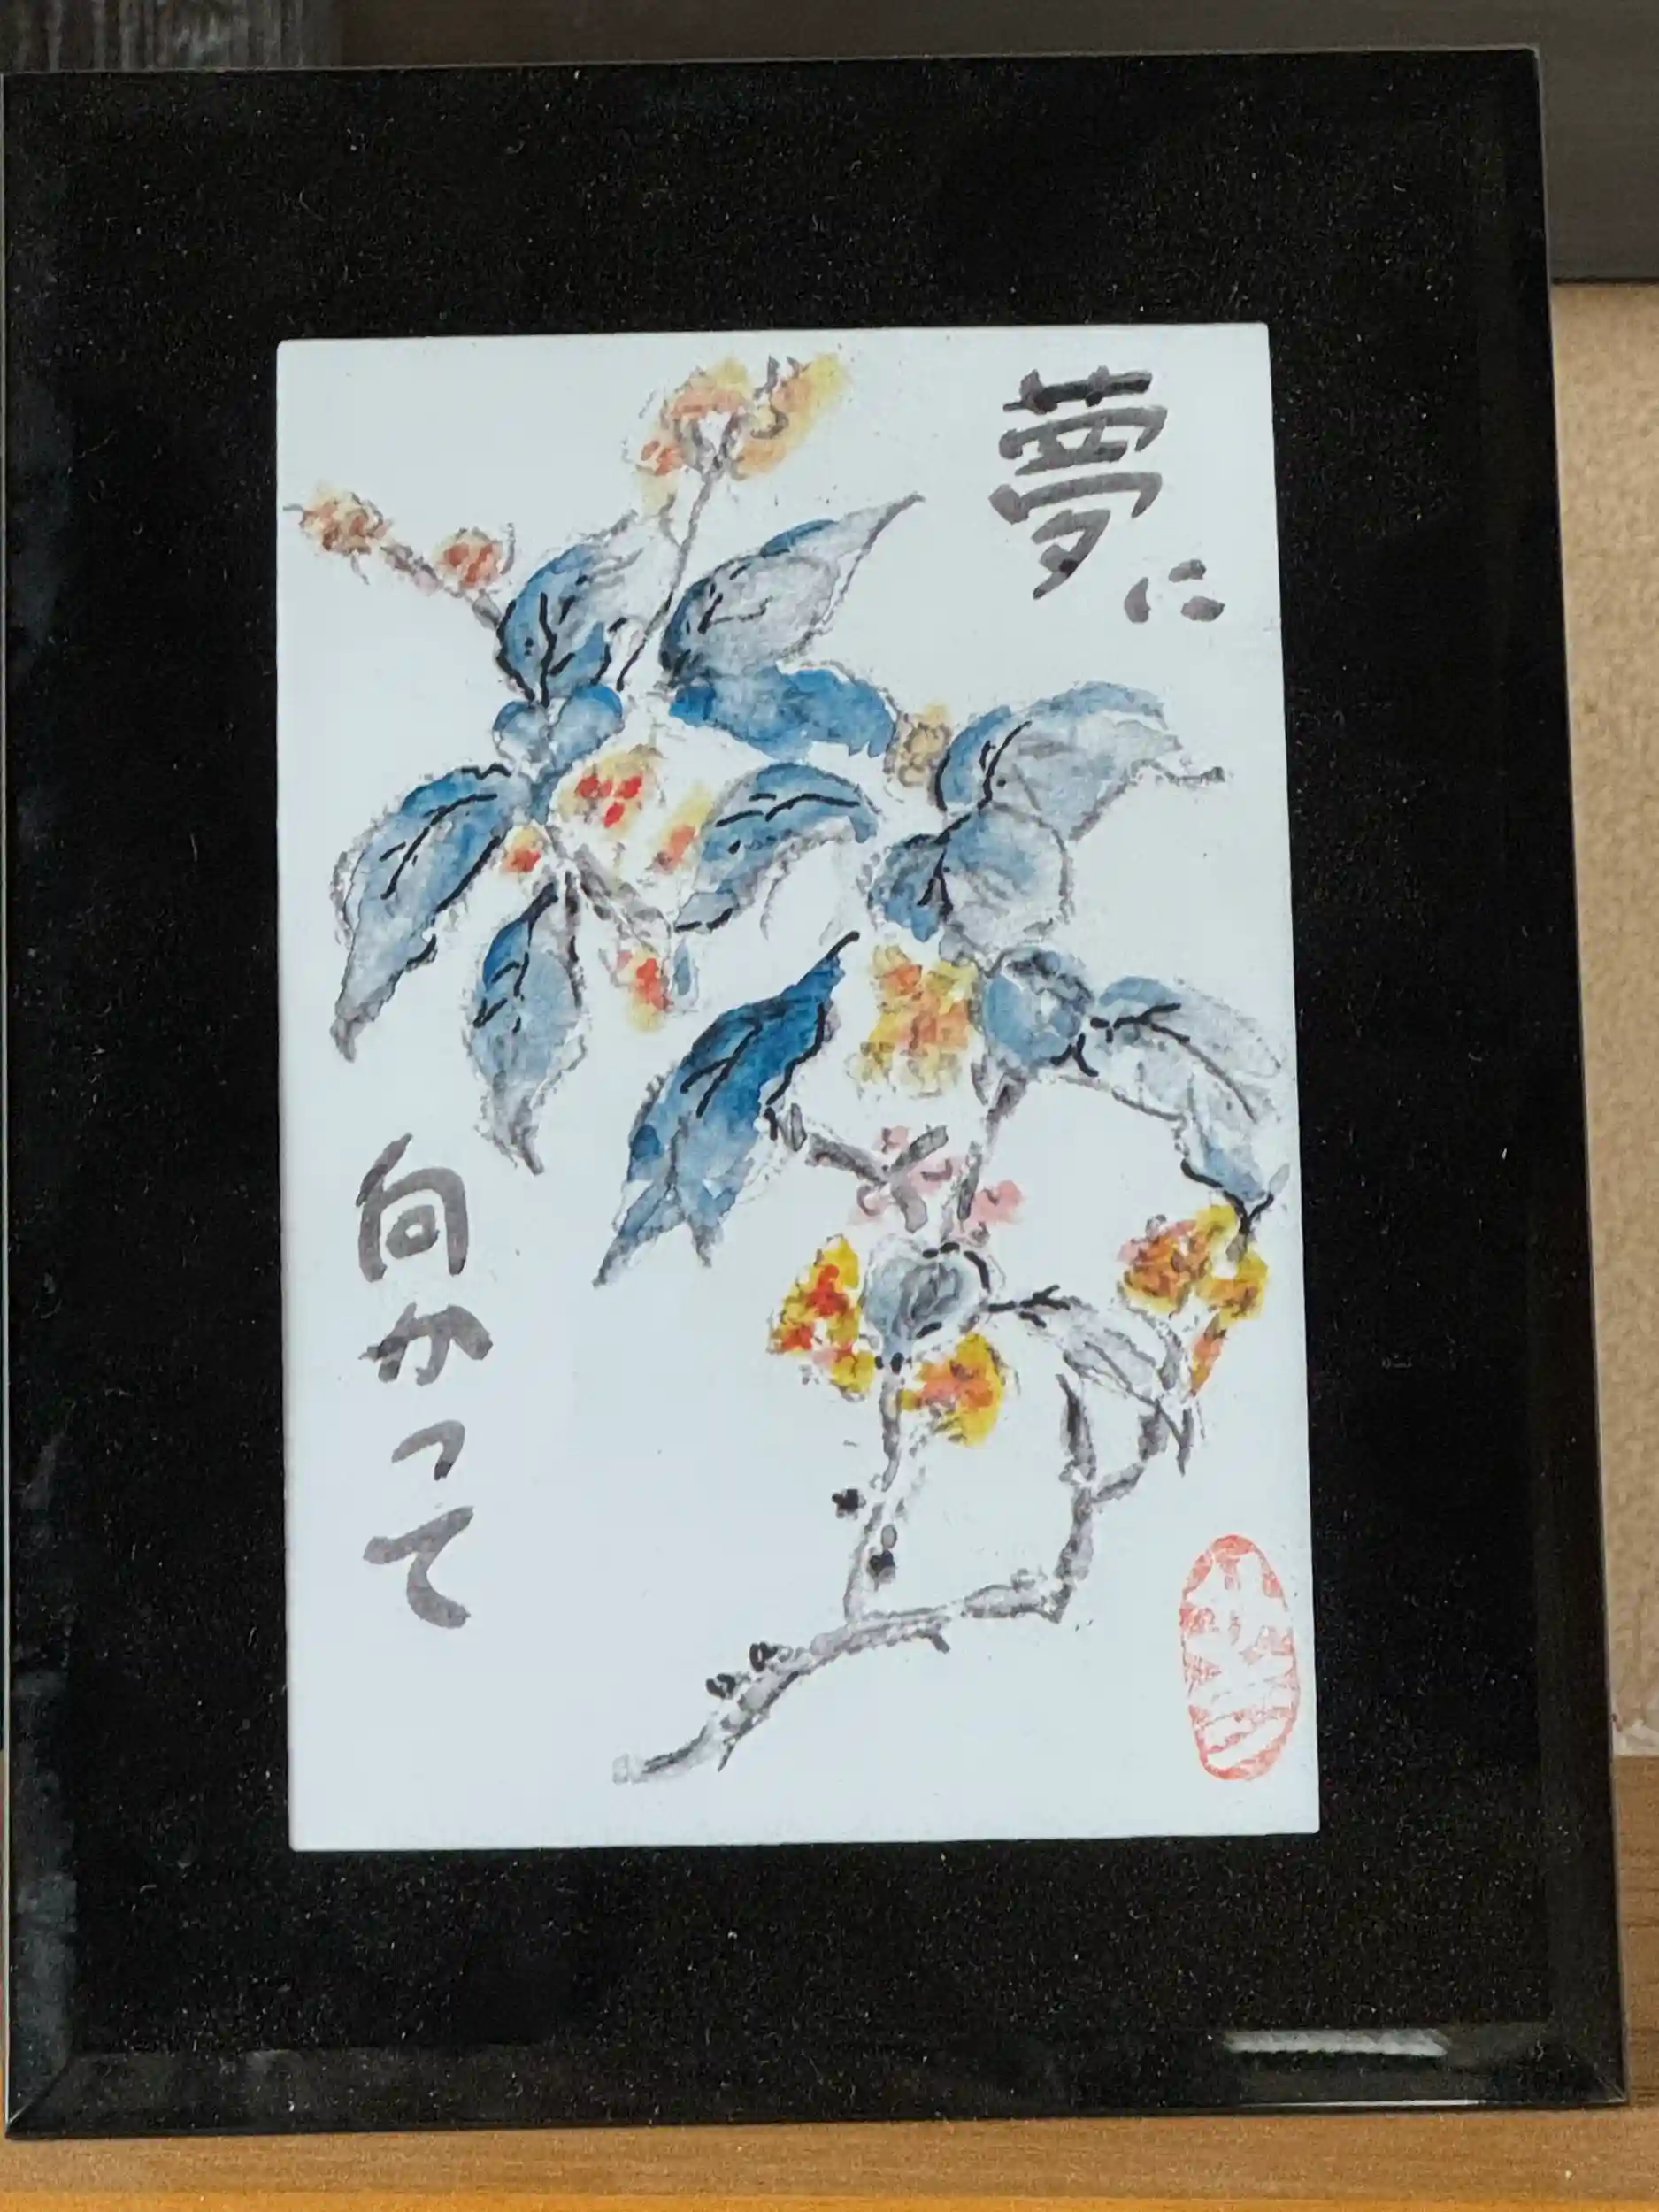 夢に
向かって